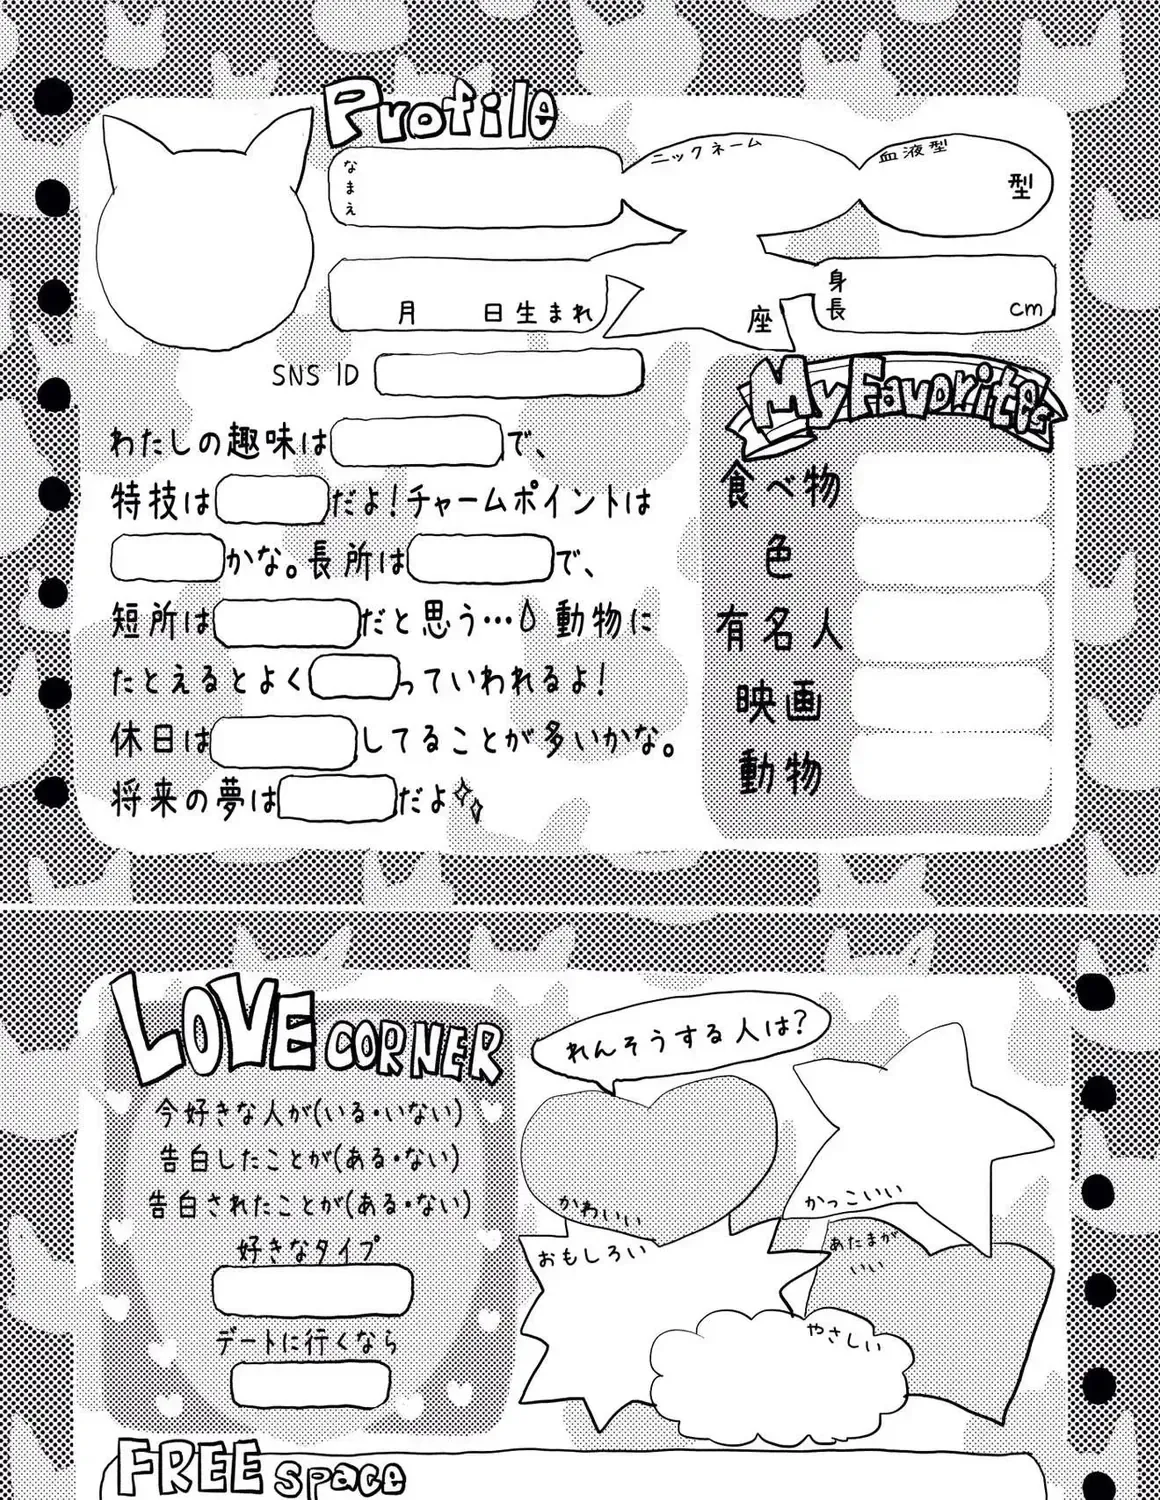 Profile
なまえ
ニックネーム
血液型
型
月 日生まれ
座
身長
cm
SNS ID
わたしの趣味は で、
特技は だよ!チャームポイントは
かな。長所は で、
短所は だと思う… 動物に
たとえるとよく っていわれるよ!
休日は してることが多いかな。
将来の夢は だよ
My Favorites
食べ物
色
有名人
映画
動物
LOVE CORNER
今好きな人が(いる・いない)
告白したことが(ある・ない)
告白されたことが(ある・ない)
好きなタイプ
デートに行くなら
れんそうする人は?
かわいい
かっこいい
おもしろい
あたまが
いい
やさしい
FREE space